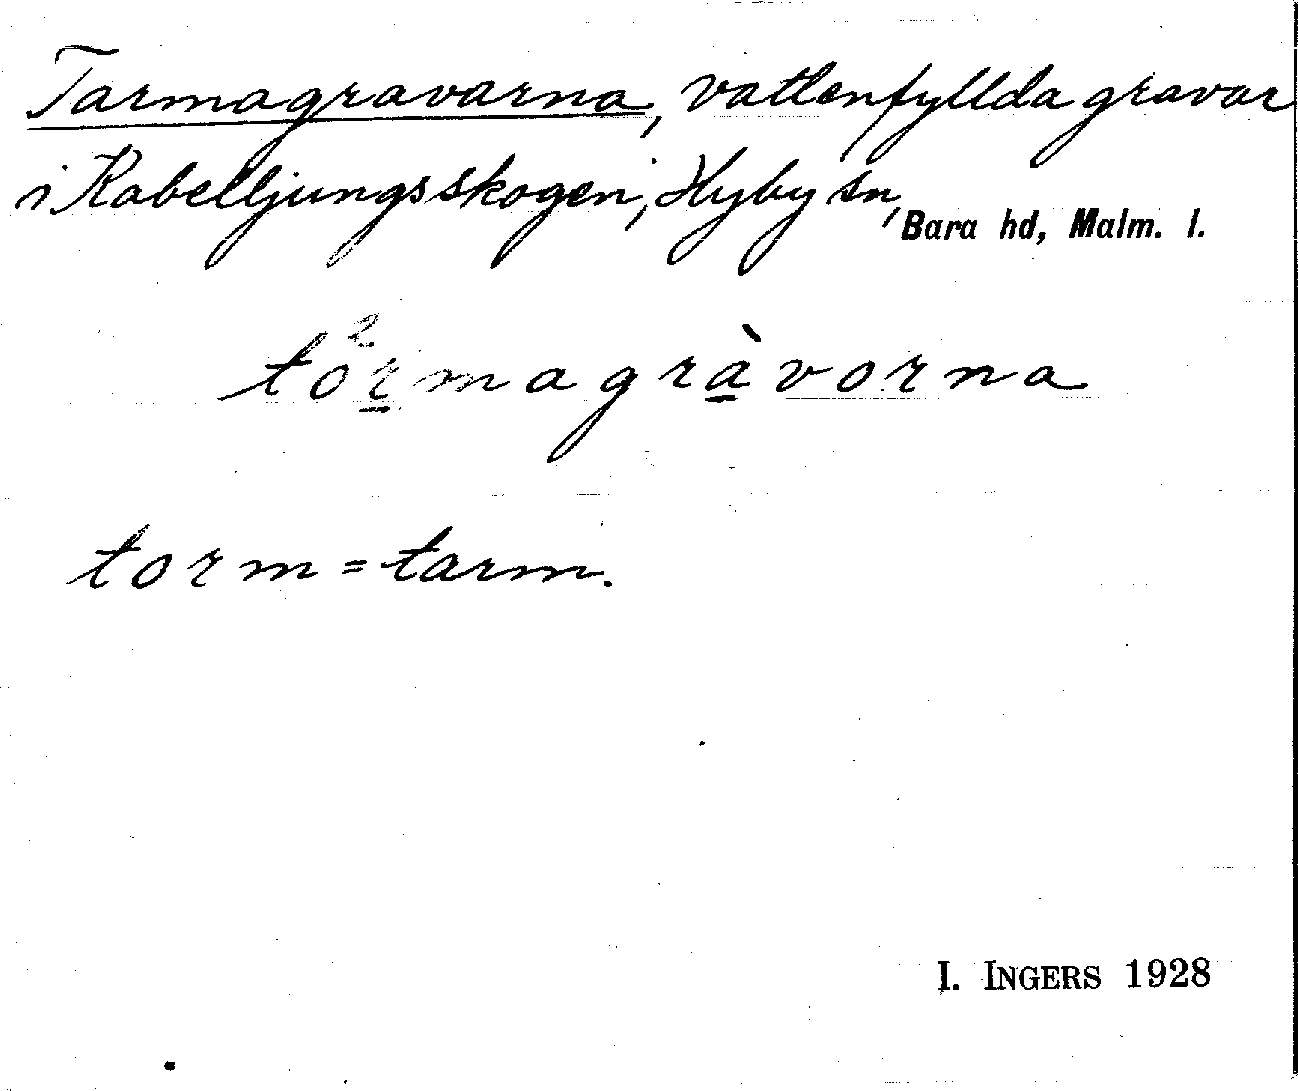 Tarmagravarna, vattenfyllda gravar
i Kabelljungsskogen, Hyby sn, Bara hd, Malm. l.
to²r̲magrà̲vorna
torm = tarm.
I. INGERS 1928